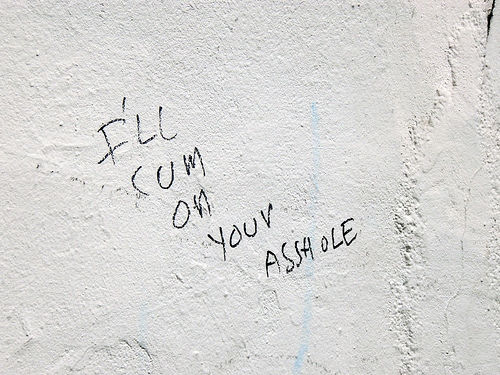 I'LL
CUM
ON
YOUR
ASSHOLE